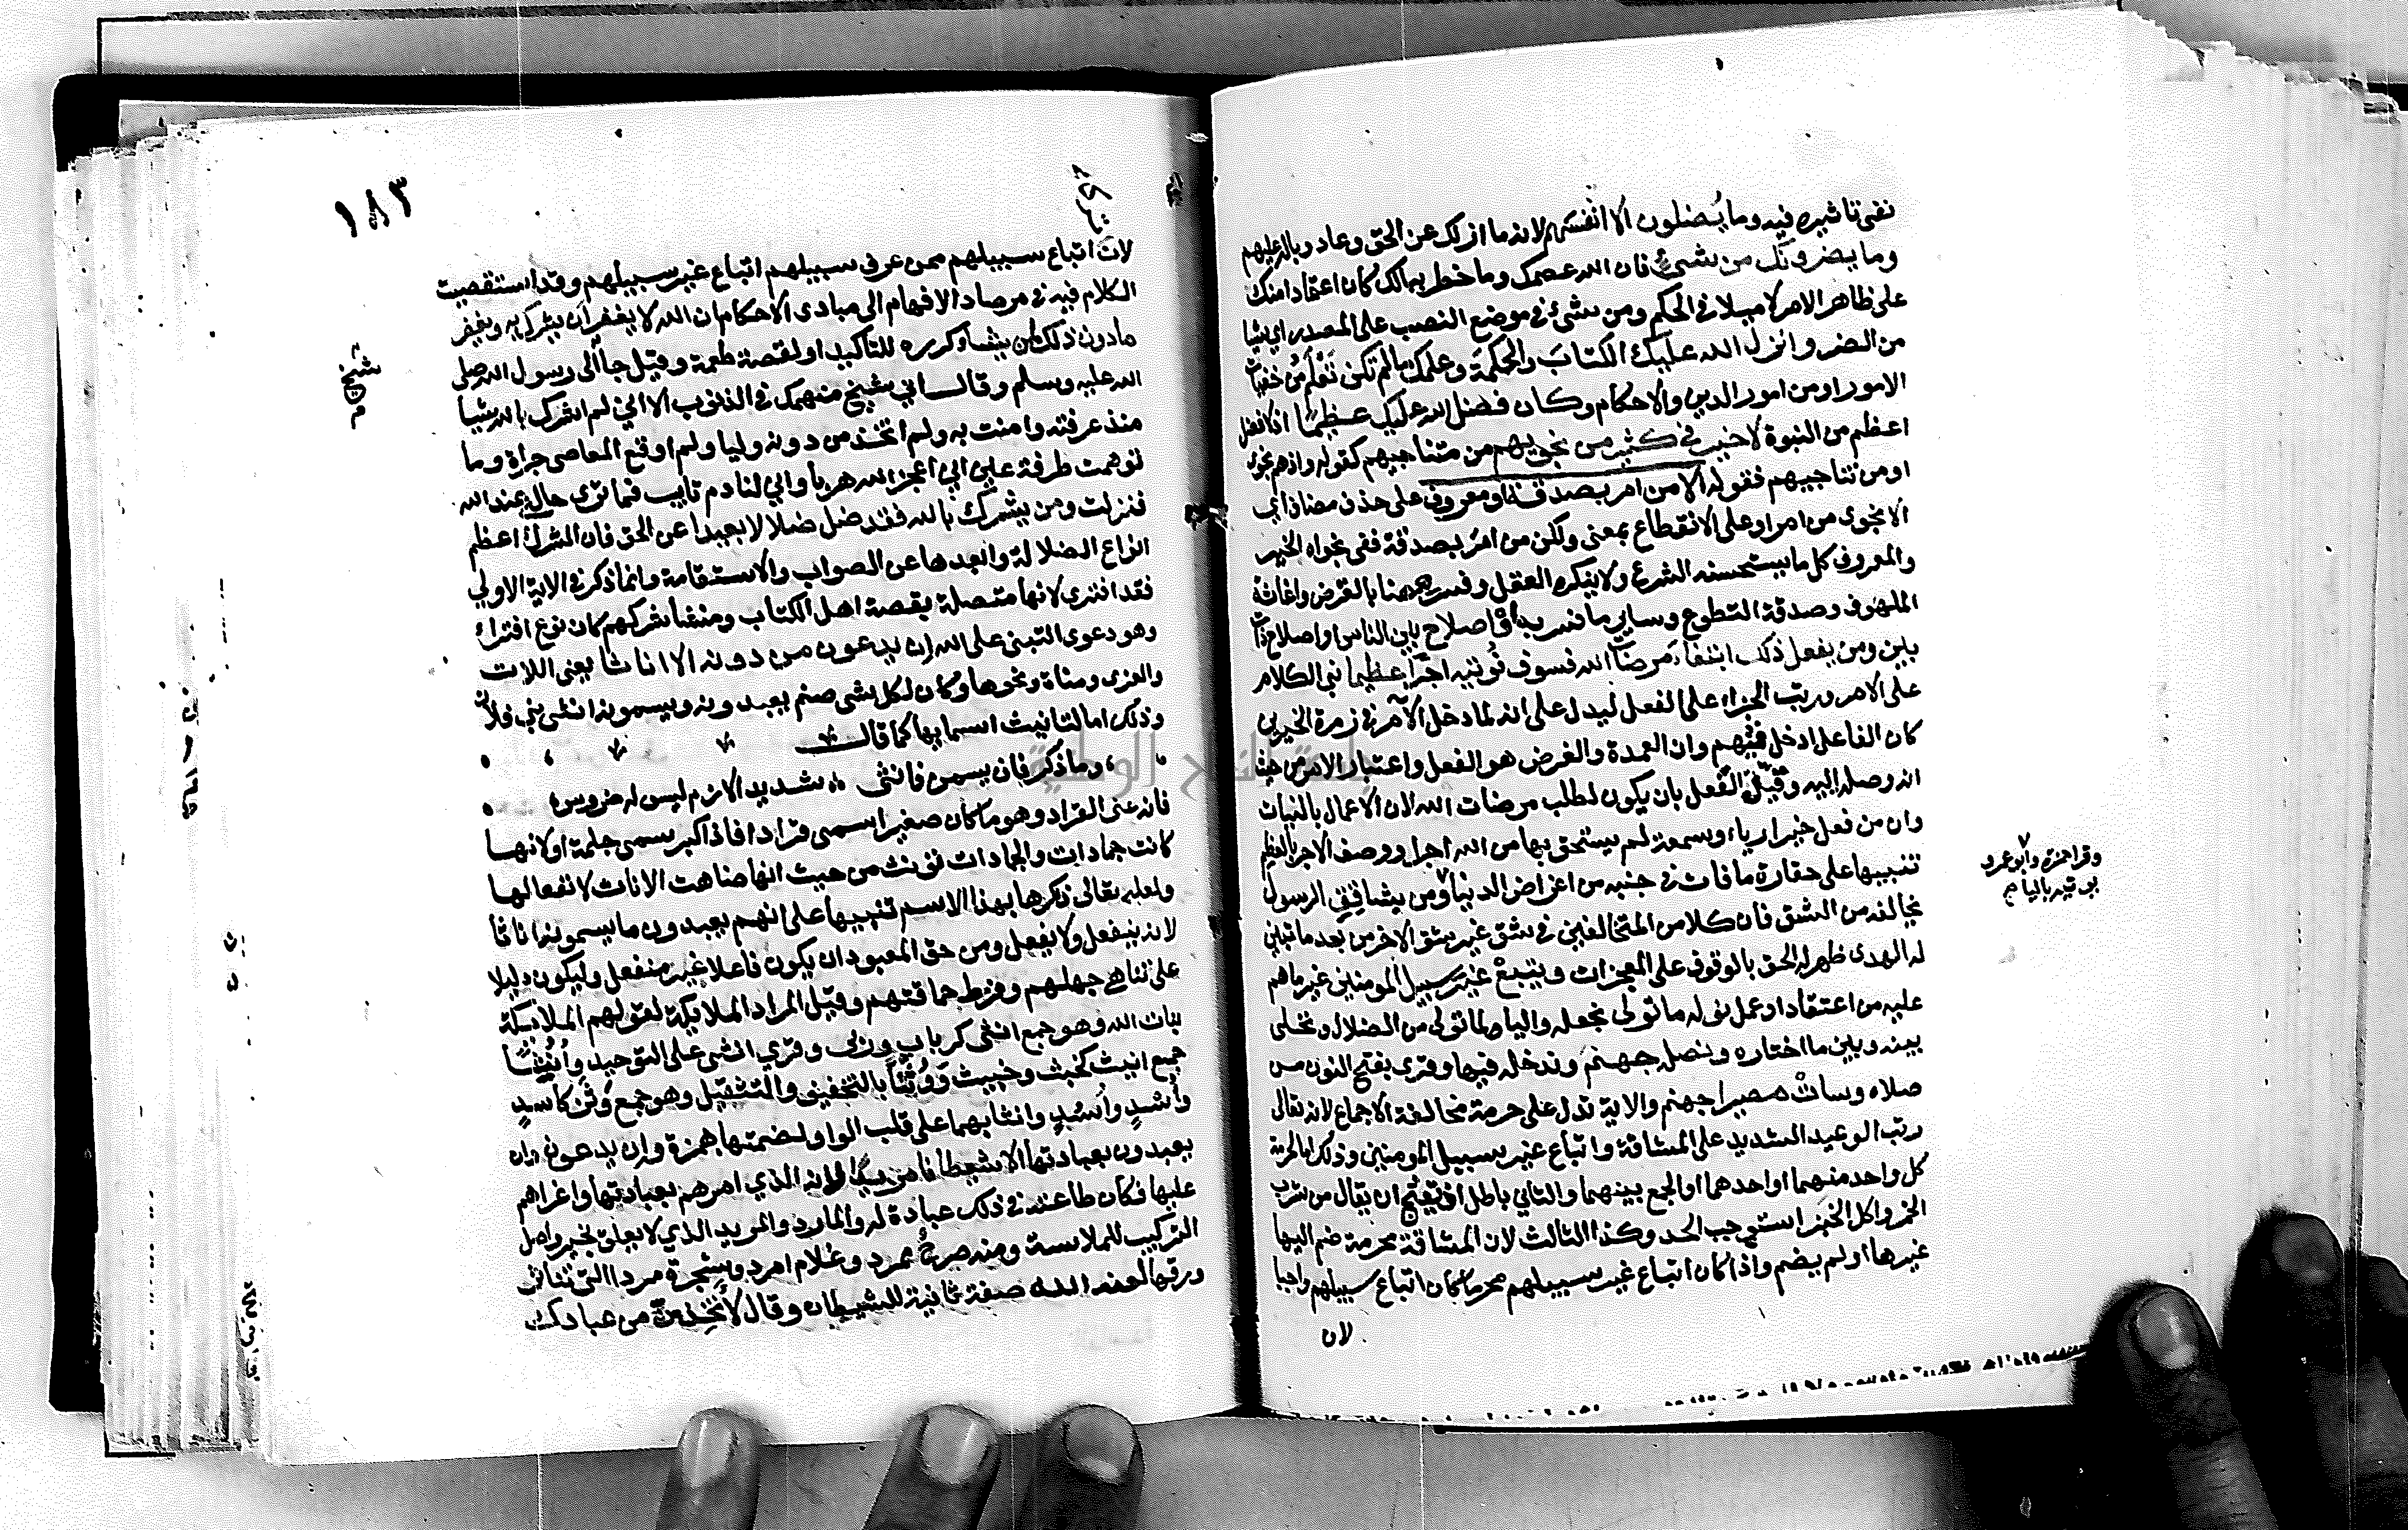 نفى تاثيره فيه وما يُضلون الا انفسهم لانه ما ازلك عن الحق وعاد وباله عليهم
وما يضرونك من شيئ فان الله عصمك وما خطر ببالك كان اعتمادا منك
على ظاهر الامر لا ميلا في الحكم ومن شئ في موضع النصب على المصدر اي شيا
من الضر وانزل الله عليك الكتابَ والحكمةَ وعلمك ما لم تكن تَعْلَمُ من خفيات
الامور او من امور الدين والاحكام وكان فضل الله عليك عظيمًا اذ لا فضل
اعظم من النبوة لا خير في كثير من نجويهم من متناجيهم كقوله واذ هم نجوى
او من تناجيهم فقوله الا من امر بصدقة او معروف على حذف مضاف اي
الا نجوى من امر او على الانقطاع بمعنى ولكن من امر بصدقة ففي نجواه الخير
والمعروف كل ما يستحسنه الشرع ولا ينكره العقل وفسر ههنا بالقرض واغاثة
الملهوف وصدقة التطوع وساير ما فسر به أوْ اصلاح بين الناس او اصلاح ذات
بين ومن يفعل ذلك ابتغاء مرضات الله فسوف نُوتيه اجرًا عظيما بنى الكلام
على الامر ورتب الجزاء على الفعل ليدل على انه لما دخل الآمر في زمرة الخيرين
كان الفاعل ادخل فيهم وان العمدة والغرض هو الفعل واعتبار الامر من حيث
انه وصلة اليه وقيّد الفعل بان يكون لطلب مرضات الله لان الاعمال بالنيات
وان من فعل خيرا رياء وسمعة لم يستحق بها من الله اجرا ووصف الاجر بالعظم
تنبيها على حقارة ما فات في جنبه من اعراض الدنيا ومن يشاقِقِ الرسول
يخالفه من الشق فان كلا من المتخالفين في شق غير شق الاخر من بعد ما تبين
له الهدى ظهر له الحق بالوقوف على المعجزات ويتبعْ غير سبيل المومنين غير ما هم
عليه من اعتقاد او عمل نوله ما تولى نجعله واليا لما تولى من الضلال ونخلى
بينه وبين ما اختاره ونصله جهنم وندخله فيها وقرى بفتح النون من
صلاه وساتْ مصيرا جهنم والاية تدل على حرمة مخالفة الاجماع لانه تعالى
رتب الوعيد الشديد على المشاقة واتباع غير سبيل المومنين وذلك اما لحرمة
كل واحد منهما او احدهما او الجمع بينهما والثاني باطل اذ يقبح ان يقال من شرب
الخمر واكل الخبز استوجب الحد وكذا الثالث لان المشاقة محرمة ضم اليها
غيرها او لم يضم واذا كان اتباع غير سبيلهم محرما كان اتباع سبيلهم واجبا
لان
وقرا حمزة وابو عمرو
يوتيه بالياء
١٨٣
لان اتباع سبيلهم ممن عرف سبيلهم اتباع غير سبيلهم وقد استقصيت
الكلام فيه في مرصاد الافهام الى مبادى الاحكام ان الله لا يغفر ان يشرك به ويغفر
ما دون ذلك لمن يشا وكرره للتاكيد او لقصة طعمة وقيل جا الى رسول الله صلى
الله عليه وسلم وقال اني شيخ منهمك في الذنوب الا اني لم اشرك بالله شيا
منذ عرفته وامنت به ولم اتخذ من دونه وليا ولم اوقع المعاصى جراة وما
توهمت طرفة عين اني اعجز الله هربا واني لنادم تايب فما ترى حالي عند الله
فنزلت ومن يشرك بالله فقد ضل ضلالا بعيدا عن الحق فان الشرك اعظم
انواع الضلالة وابعدها عن الصواب والاستقامة وانما ذكر في الاية الاولي
فقد افترى لانها متصلة بقصة اهل الكتاب ومنشا شركهم كان نوع افتراء
وهو دعوى التبنى على الله إن يدعون من دونه الا اناثا يعنى اللات
والعزى ومناة ونحوها وكان لكل شى صنم يعبدونه ويسمونه انثى بنى فلان
وذلك اما لتانيث اسمايها كما قال
وما ذكر فان يسمن فانثى شديد الازم ليس له ضروس
فانه عنى القراد وهو ما كان صغيرا سمى قرادا فاذا كبر سمى حلمة او لانها
كانت جمادات والجمادات تونث من حيث انها ضاهت الاناث لانفعالها
ولعله تعالى ذكرها بهذا الاسم تنبيها على انهم يعبدون ما يسمونه اناثا
لانه ينفعل ولا يفعل ومن حق المعبود ان يكون فاعلا غير منفعل وليكون دليلا
على تناهي جهلهم وفرط حماقتهم وقيل المراد الملايكة لقولهم الملايكة
بنات الله وهو جمع انثى كرباب وربى وقرى انثى على التوحيد وأُنُثًا
جمع انيث كخبث وخبيث ووُثْنًا بالتخفيف والتثقيل وهو جمع وَثَن كاسد
وأُسْدٍ وأُسُدٍ واثنا بهما على قلب الواو لضمتها همزة وإن يدعون وان
يعبدون بعبادتها الا شيطانا مريدا لانه الذي امرهم بعبادتها واغراهم
عليها فكان طاعته في ذلك عبادة له والمارد والمريد الذي لا يعلق بخير واصل
التركيب للملاسة ومنه صرح ممرد وغلام امرد وشجرة مردا التي تناثر
ورقها لعنه الله صفة ثانية للشيطان وقال لأتَّخِذنّ من عبادك
شيخ